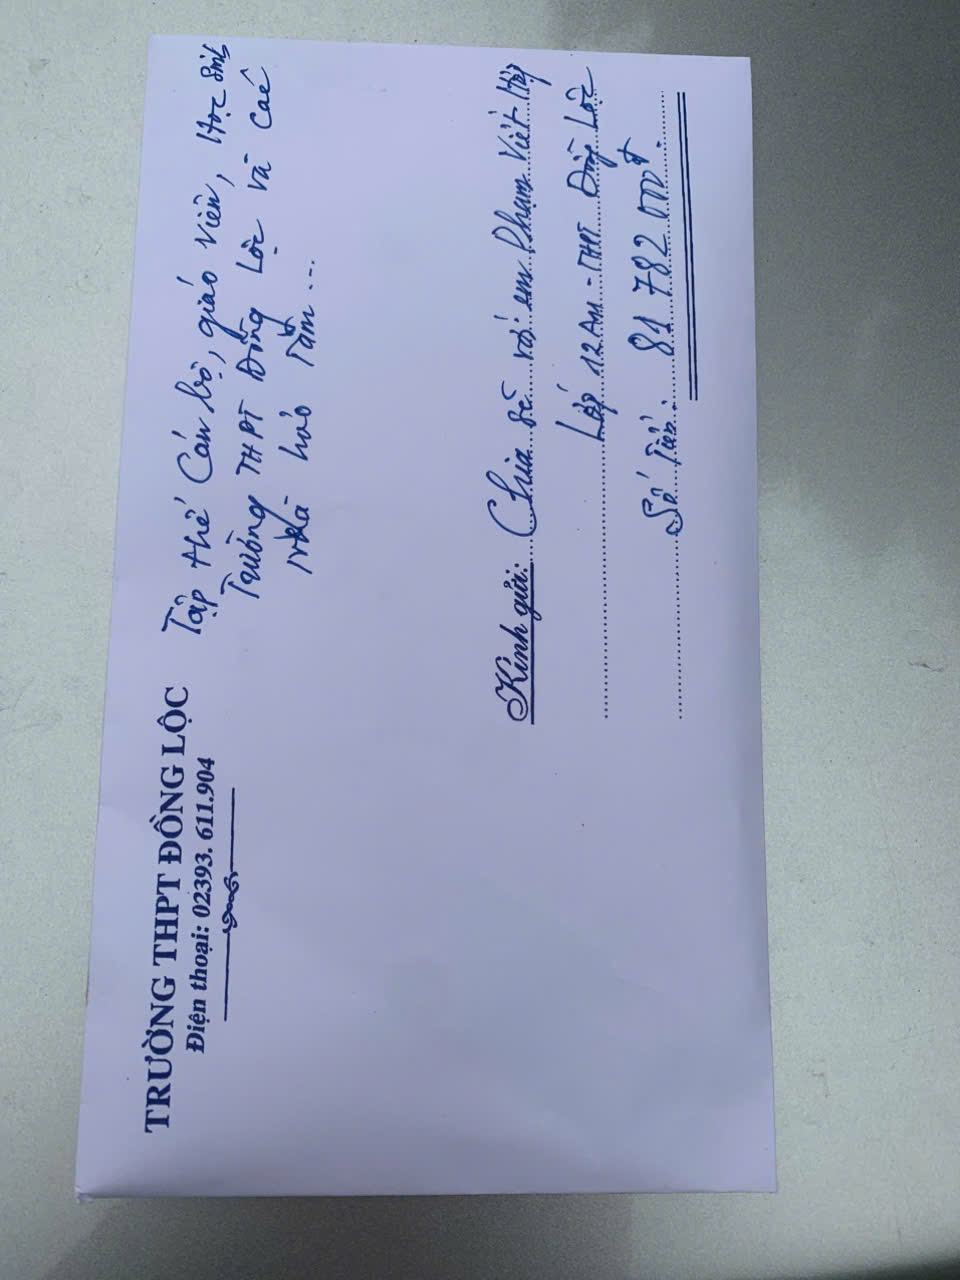 TRƯỜNG THPT ĐỒNG LỘC
Điện thoại: 02393. 611.904
Tập thể Cán bộ, giáo viên, Học sinh
Trường THPT Đồng Lộc và Các
nhà hảo Tâm...
Kính gửi: Chia sẻ với em Phạm Viết
Lớp 12A11 - THPT Đồng Lộc
Số Tiền: 81 782 000đ.